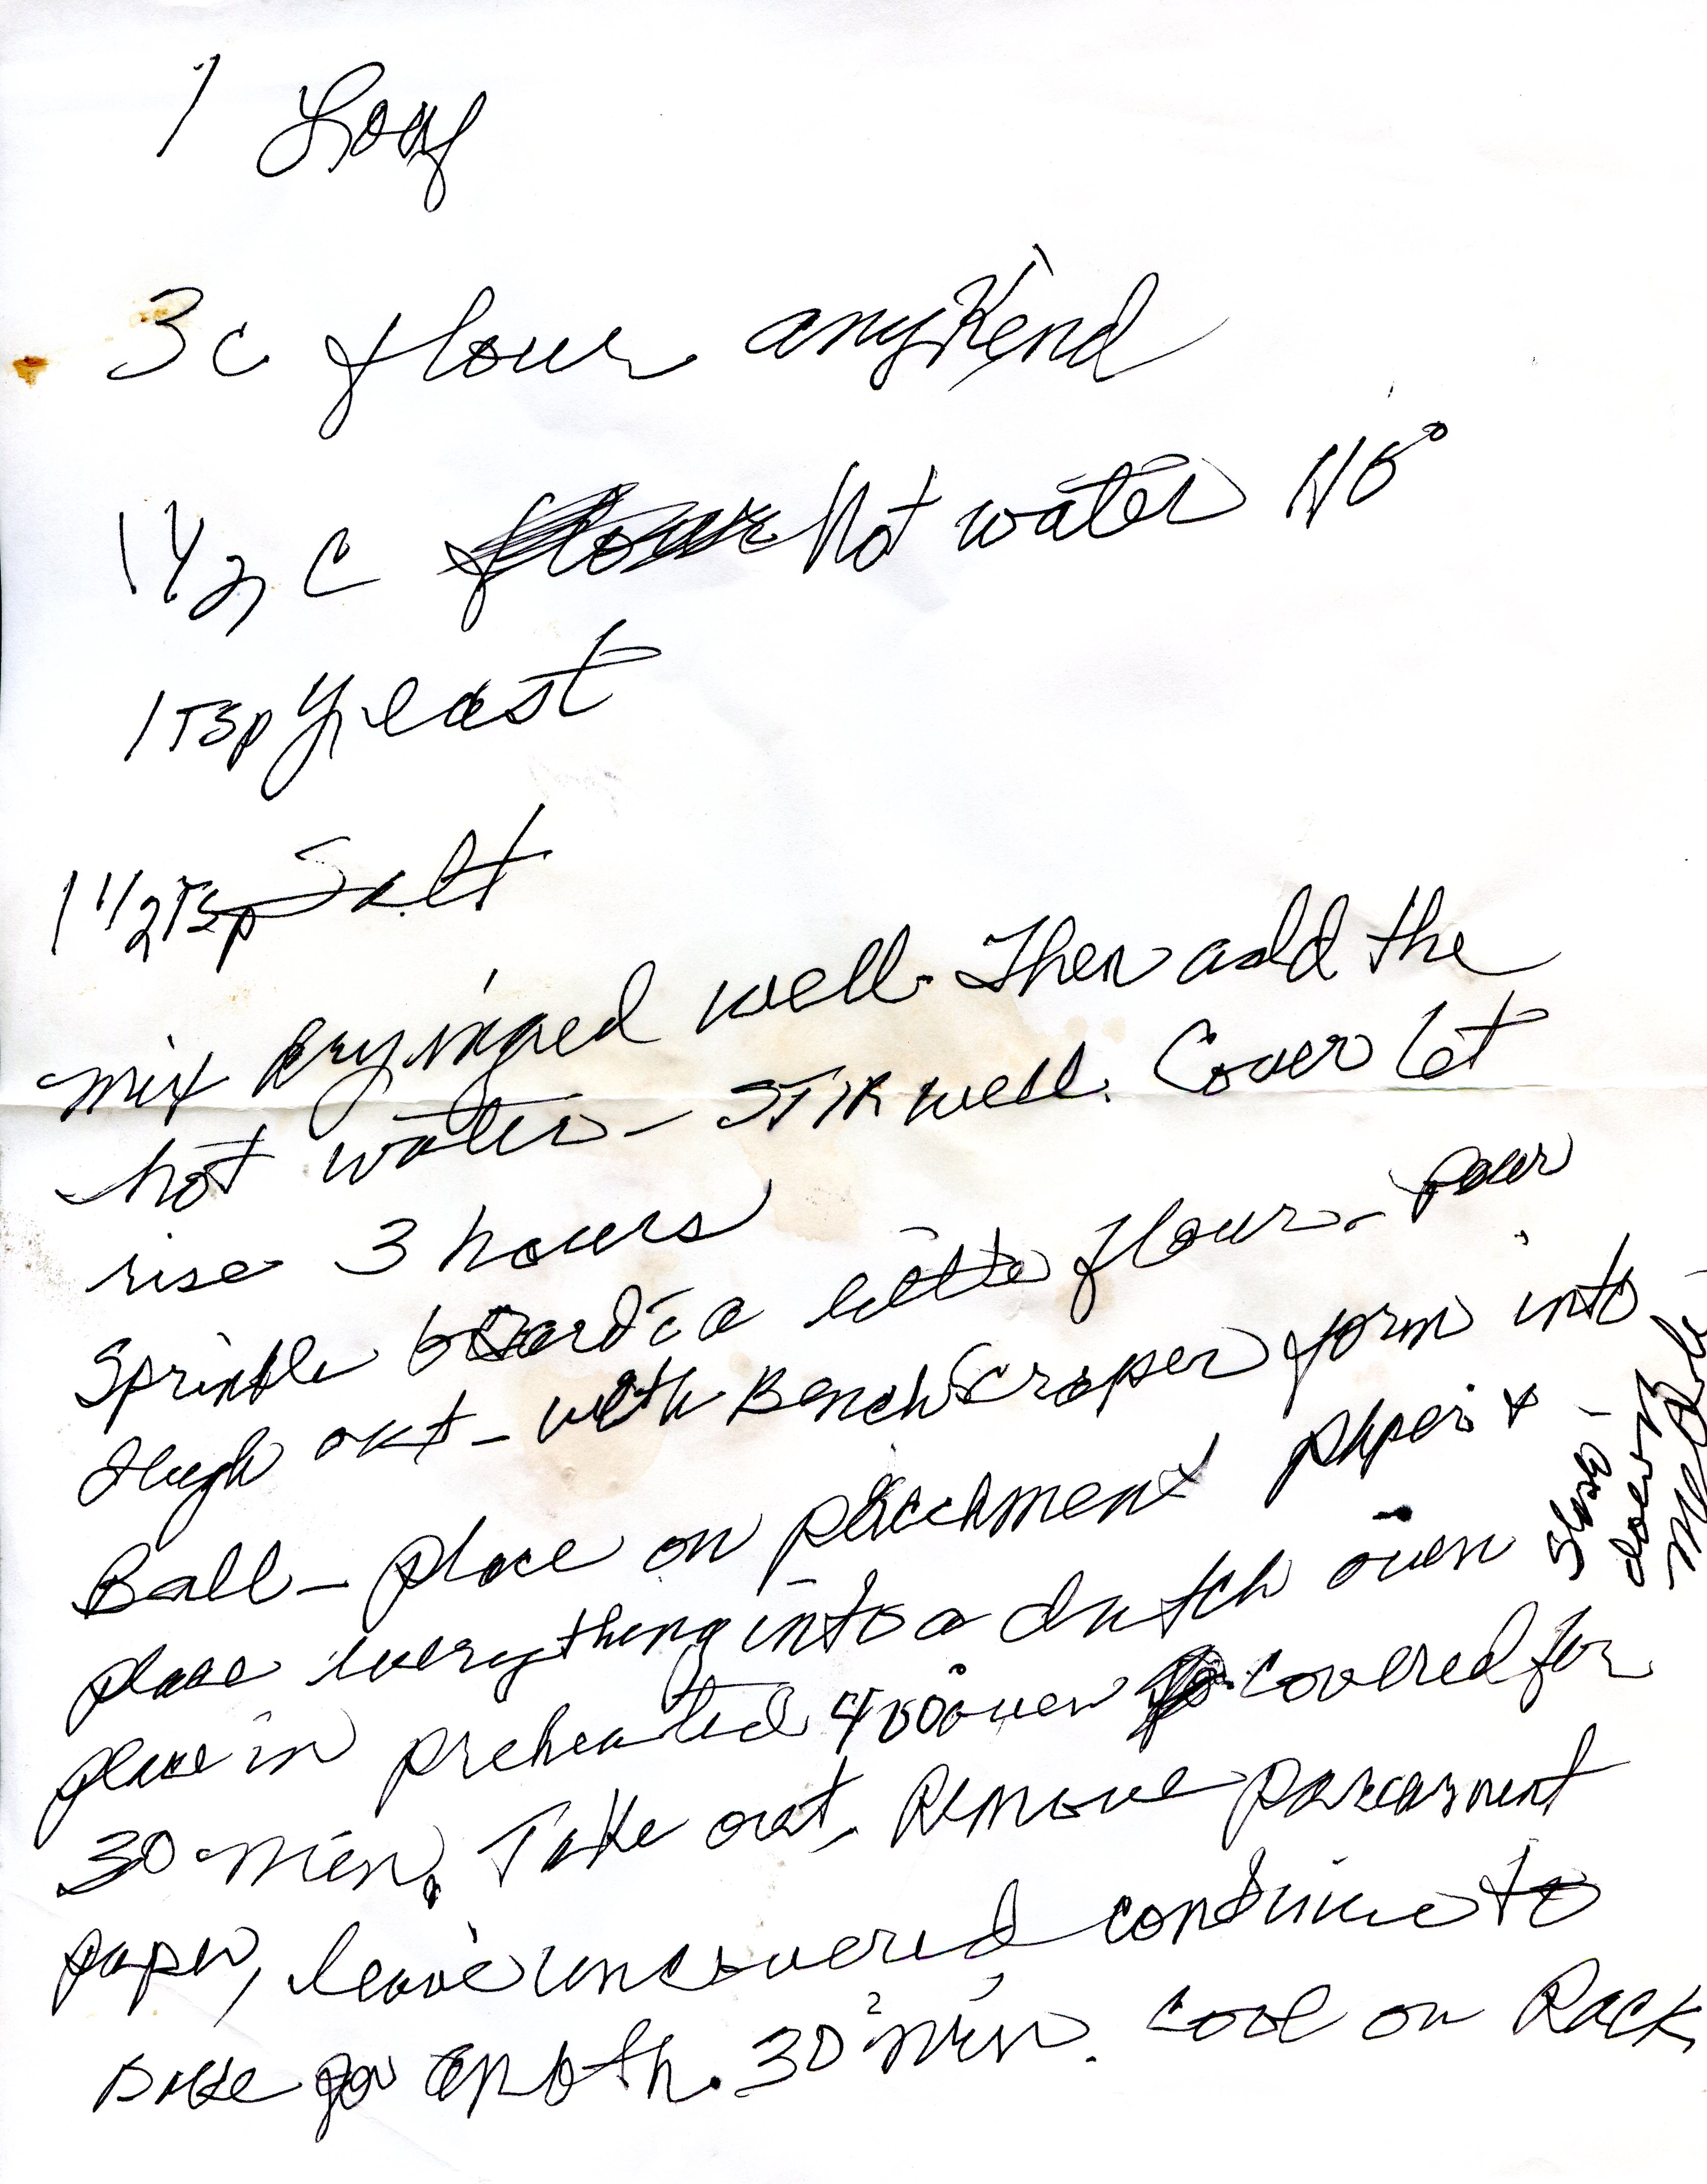 1 Loaf
3 c flour any Kind
1 1/2 c flour hot water 110°
1 Tsp yeast
1 1/2 Tsp Salt
mix dry ingred well. Then add the
hot water - STIR well. Cover let
rise 3 hours
Sprinkle board c̄ a little flour - pour
dough out - with Bench Scraper form into
Ball - place on parchment paper +
place everything into a dutch oven
Slash
down
place in preheated 400° oven covered for
30 min. Take out, Remove parcament
paper, leave uncovered continue to
bake for anoth. 30 min. cool on Rack